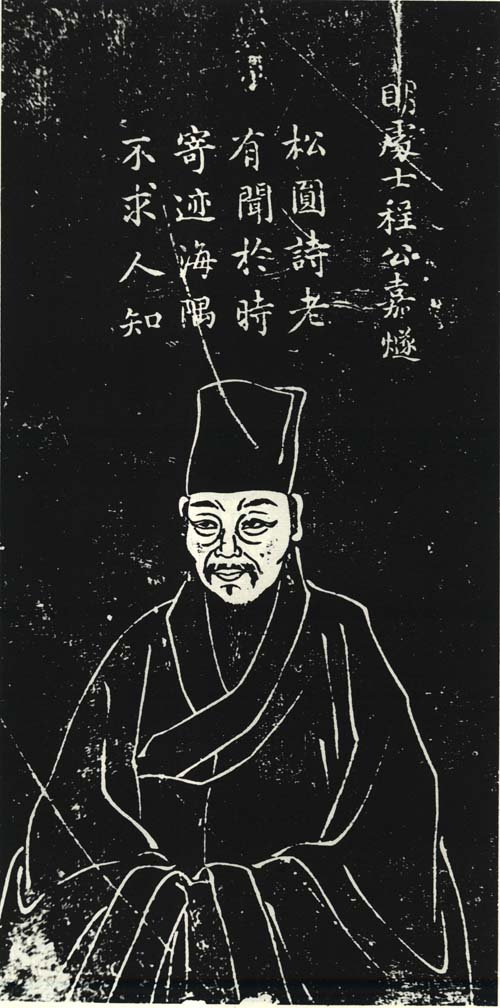 明處士程公嘉燧
松圓詩老
有聞於時
寄迹海隅
不求人知